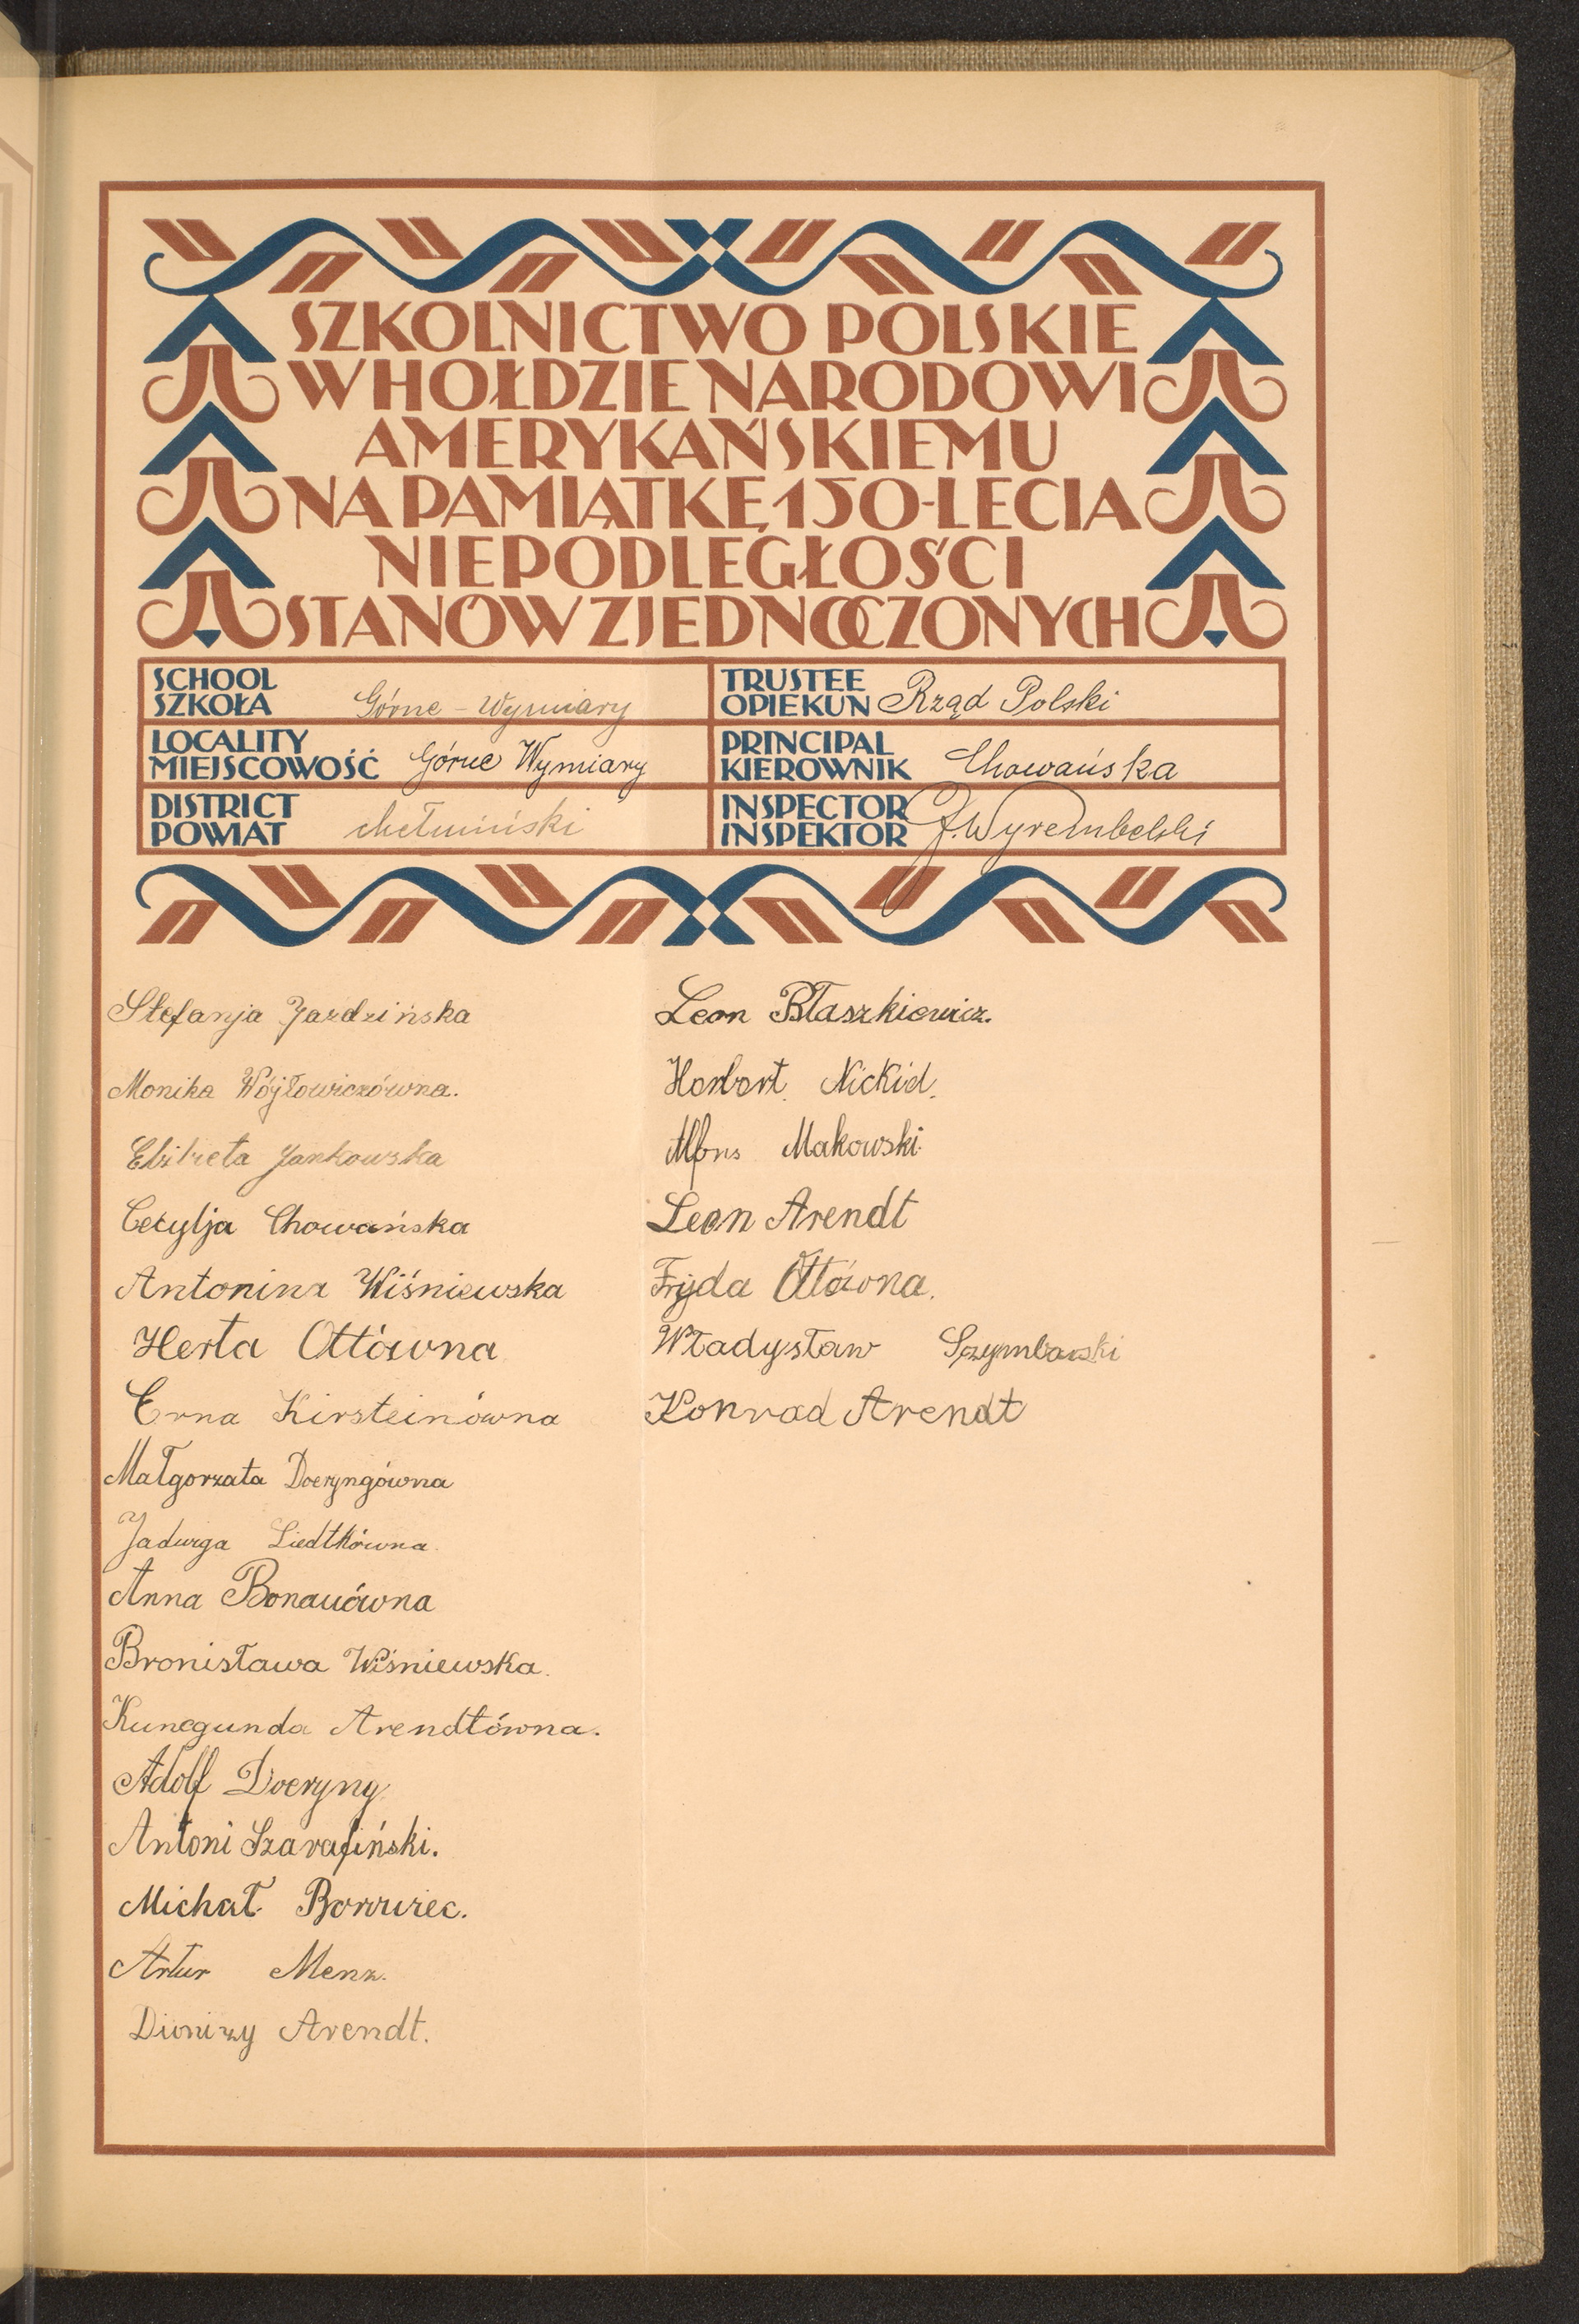 SZKOLNICTWO POLSKIE
W HOŁDZIE NARODOWI
AMERYKAŃSKIEMU
NA PAMIĄTKĘ 150-LECIA
NIEPODLEGŁOŚCI
STANÓW ZJEDNOCZONYCH
SCHOOL
SZKOŁA Górne - Wymiary
TRUSTEE
OPIEKUN Rząd Polski
LOCALITY
MIEJSCOWOŚĆ Górne Wymiary
PRINCIPAL
KIEROWNIK Chowańska
DISTRICT
POWIAT chełmiński
INSPECTOR
INSPEKTOR J. Wyrembelski
Stefanja Jazdzińska
Monika Wójtowiczówna.
Elżbieta Jankowska
Cecylja Chowańska
Antonina Wiśniewska
Herta Ottówna
Erna Kirsteinówna
Małgorzata Doeryngówna
Jadwiga Liedtkówna.
Anna Bonauówna
Bronisława Wiśniewska.
Kunegunda Arendtówna.
Adolf Doeryng
Antoni Szarafiński.
Michał Borowiec.
Artur Menz.
Dionizy Arendt.
Leon Błaszkiewicz.
Herbert Nickid.
Alfons Makowski
Leon Arendt
Fryda Ottówna.
Władysław Szymborski
Konrad Arendt